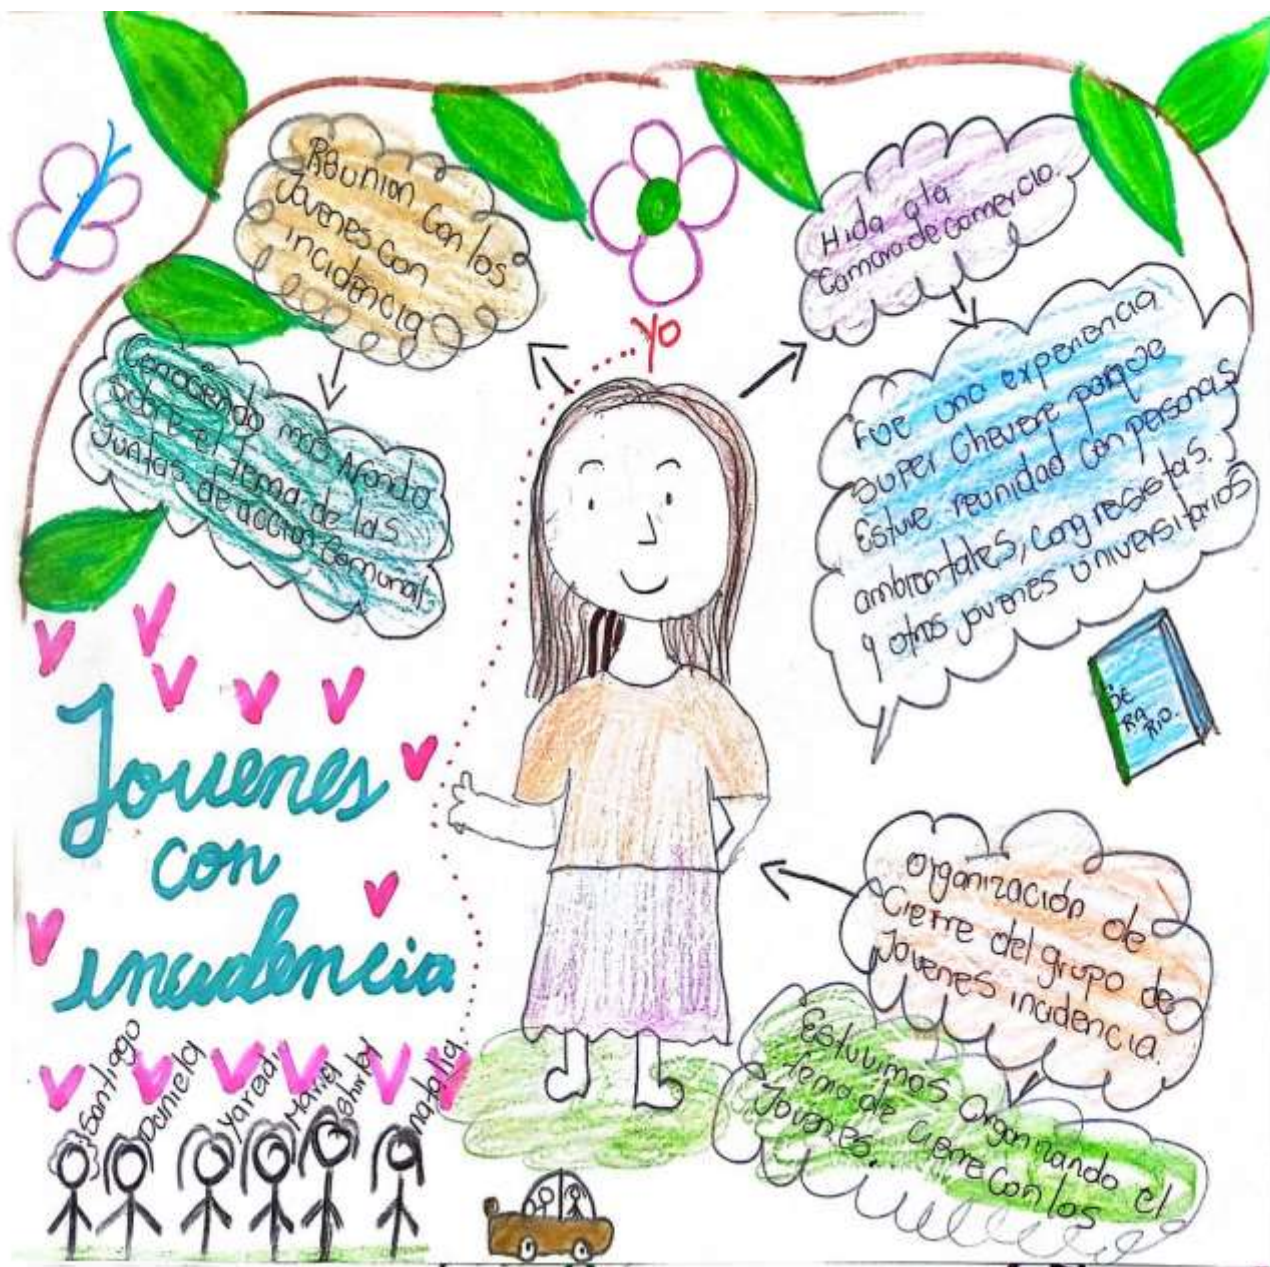 Reunion con los
Jovenes con
incidencia
Conociendo mas Afondo
sobre el tema de las
Juntas de accion comunal
Yo
Hida a la
Camara de Comercio.
Fue una experiencia
super Chevere porque
Estuve reunidad con personas
ambientales, congresistas.
y otros jovenes universitarios
SE
RA
RIO.
Jovenes
con
incidencia
organización de
Cierre del grupo de
Jovenes incidencia.
Estuvimos organizando el
tema de cierre con los
Jovenes.
Santiago
Daniela
Yaradi
Maria
Shirley
natalia.